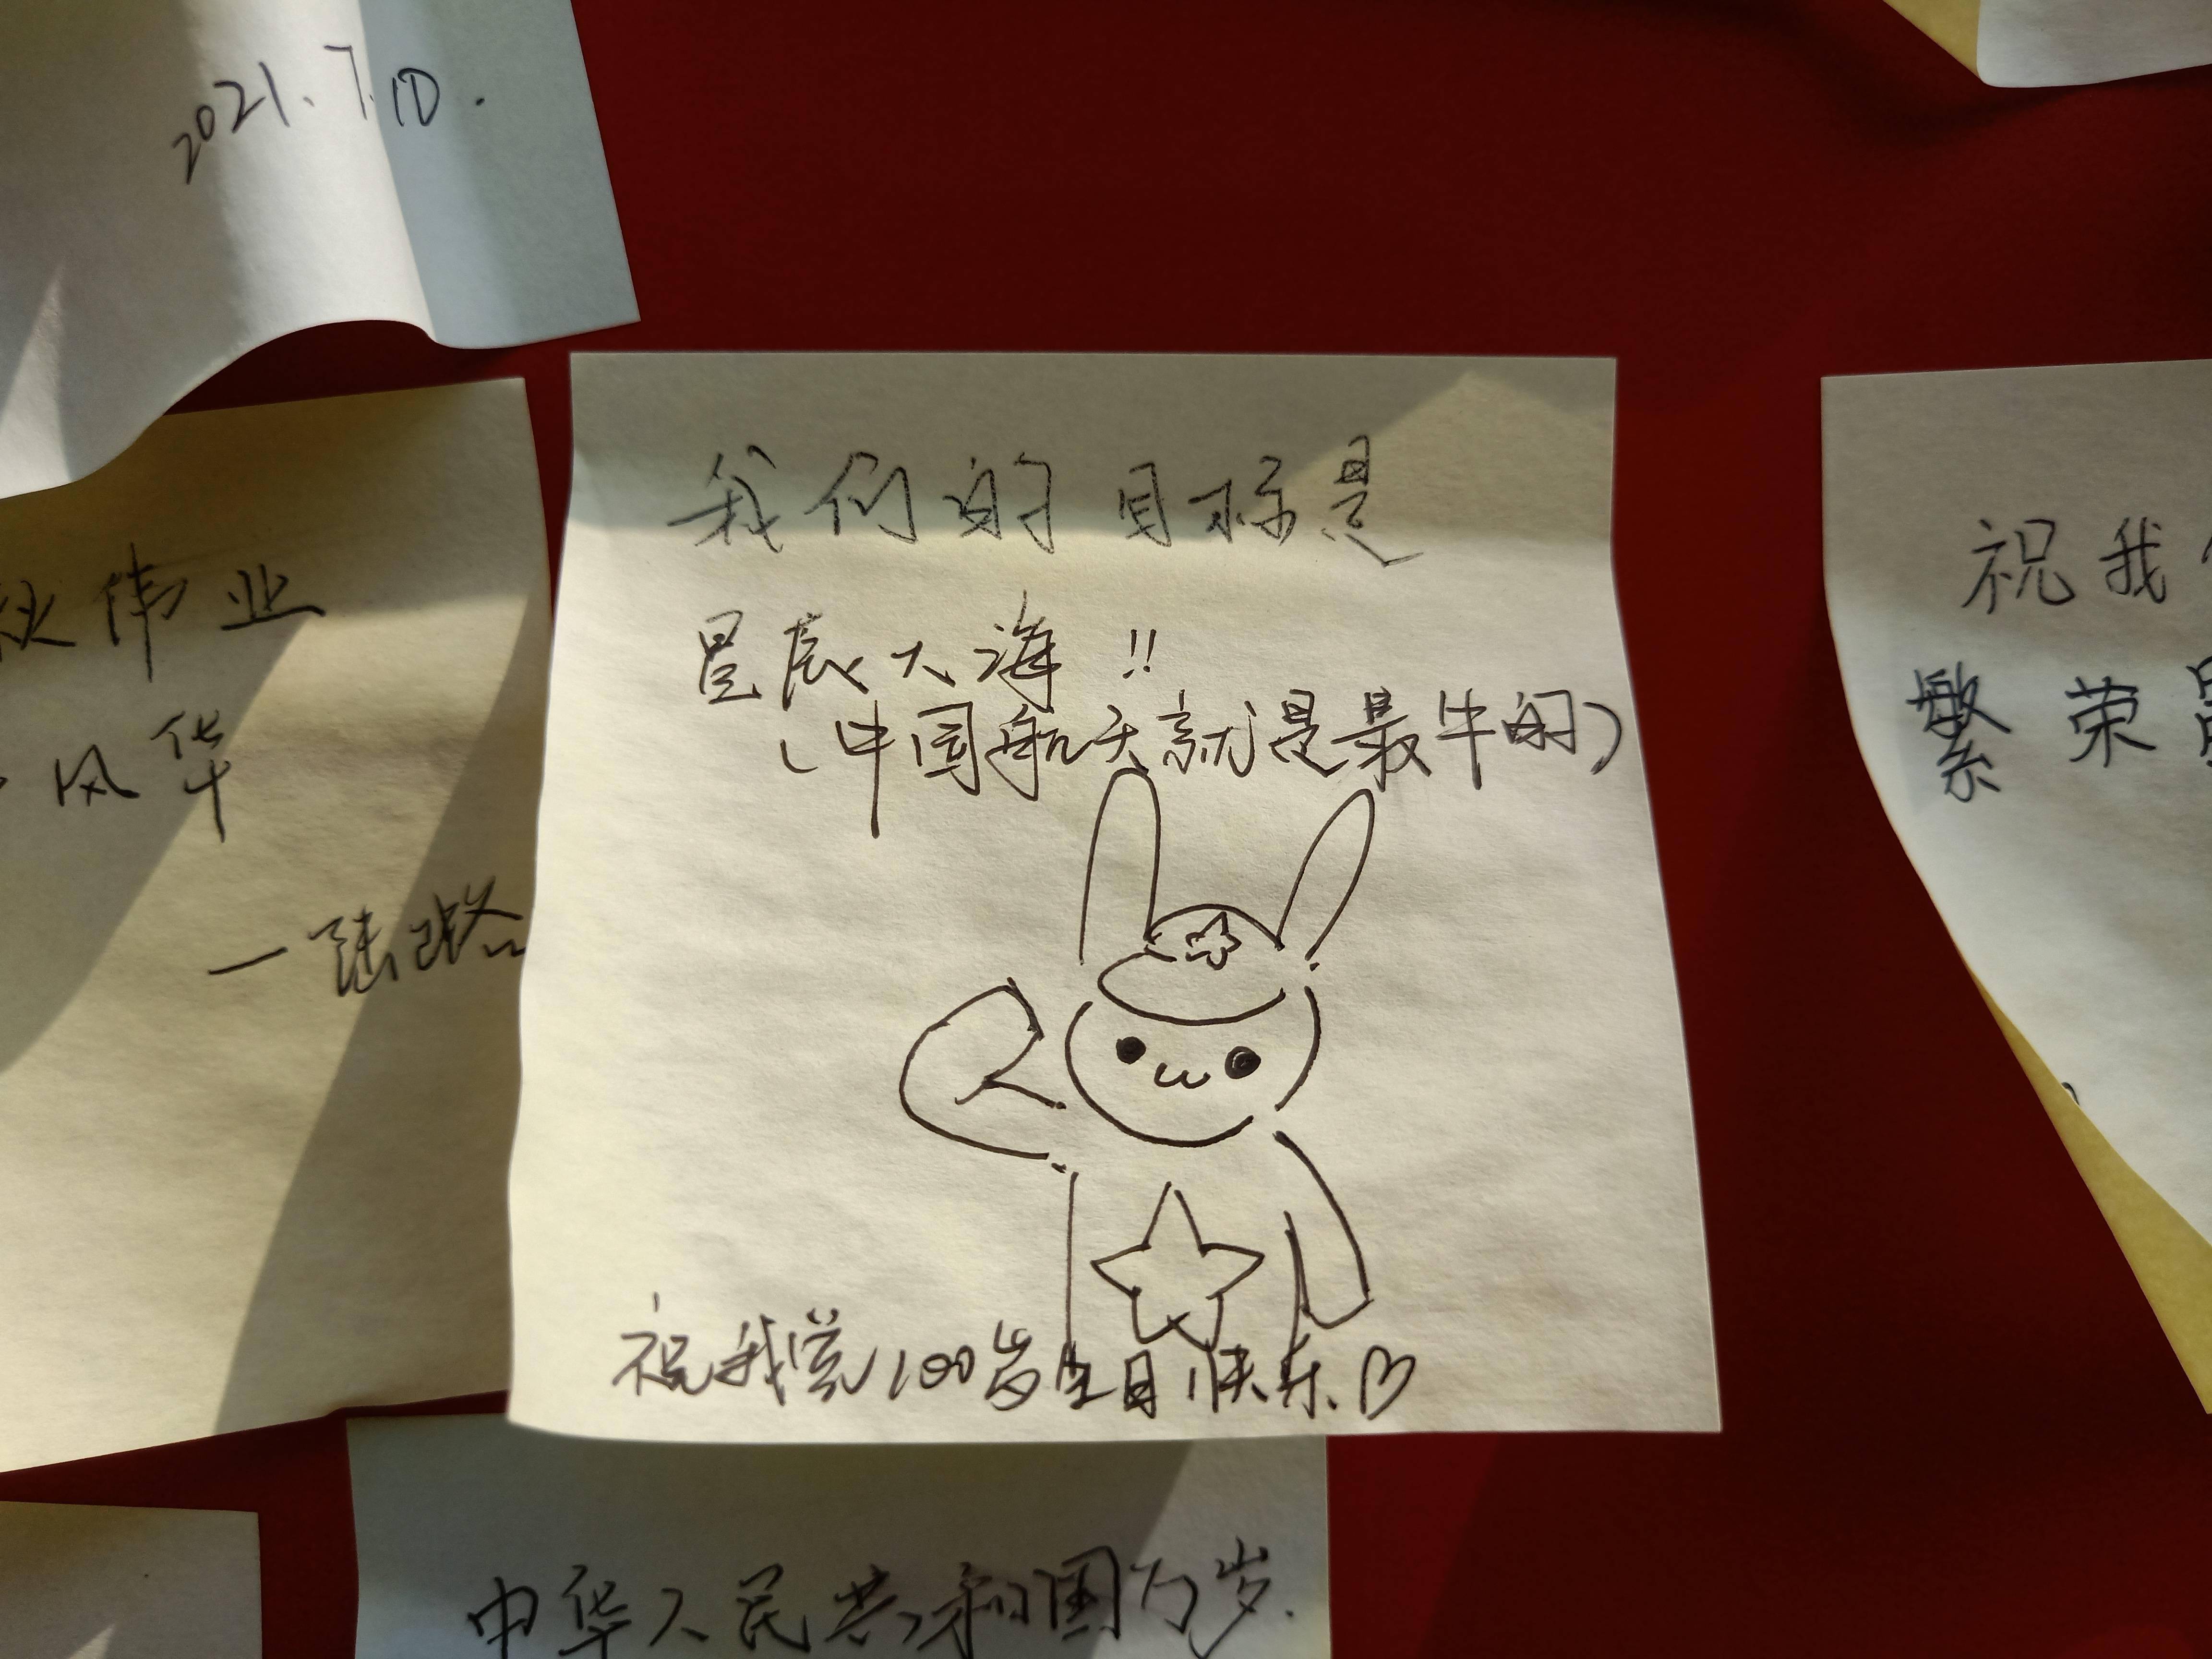 2021.7.10.
伟业
风华
我们的目标是
星辰大海!!
(中国航天就是最牛的)
祝我党100岁生日快乐♡
祝我
繁荣
中华人民共和国万岁.